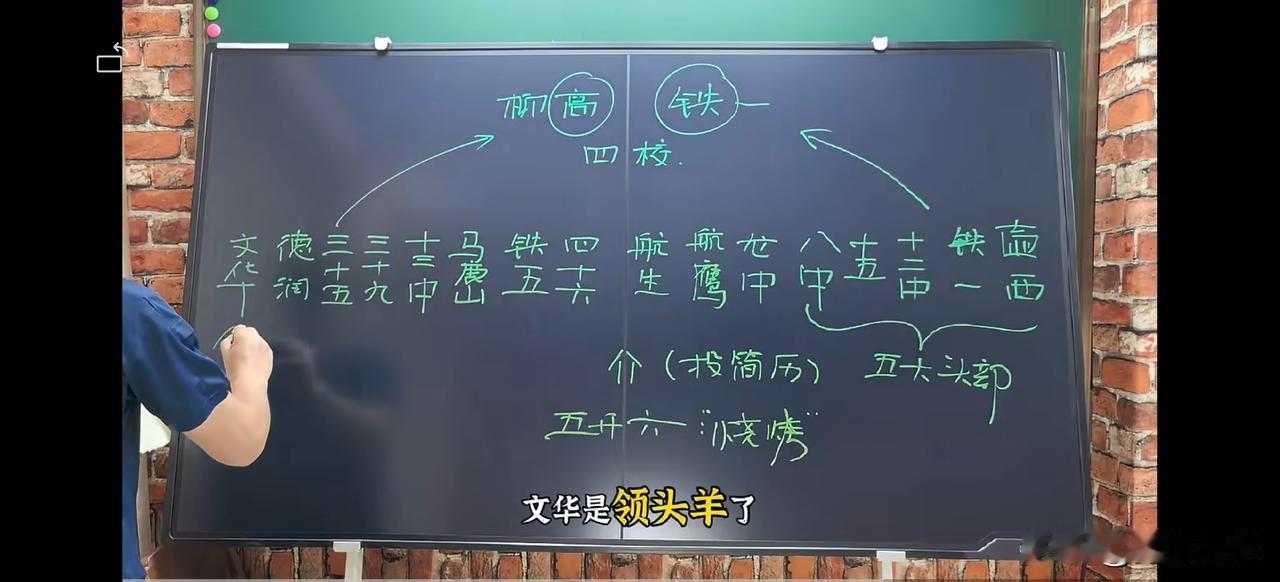 柳高 铁一
四校.
文华 德润 三十五 三十九 十三中 马鹿山 铁五 四十六 航生 航鹰 龙中 八中 十五 十二中 铁一 壶西
个(投简历) 五大头部
五升六"烧烤"
文华是领头羊了